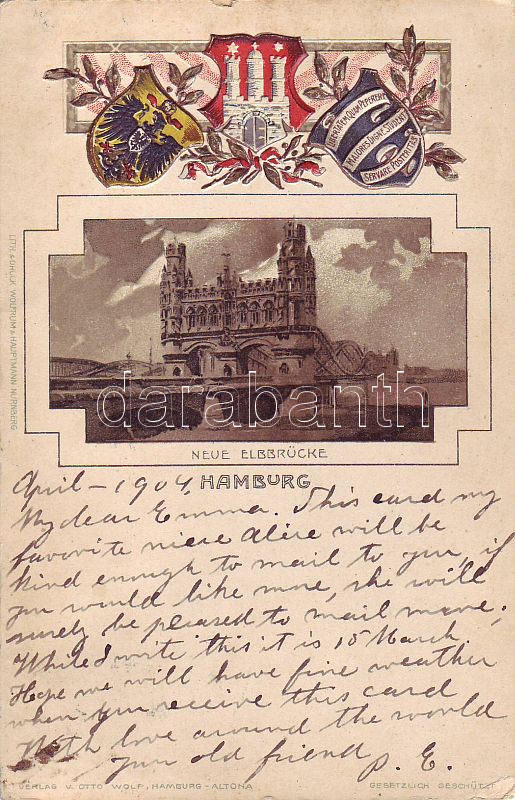 LIBERTATEM QUAM PEPERERE
MAIORES DIGNE STUDEAT
SERVARE POSTERITAS
LITH. & DRUCK WOLFRUM & HAUPTMANN NÜRNBERG
darabanth
NEUE ELBBRÜCKE
HAMBURG
April – 1904.
My dear Emma. This card my
favorite niece will be
kind enough to mail to you, if
you would like more, she will
surely be pleased to mail more.
While I write this it is 15 March
Hope we will have fine weather
when you receive this card
With love around the world
Your old friend P. E.
VERLAG V. OTTO WOLF, HAMBURG - ALTONA
GESETZLICH GESCHÜTZT